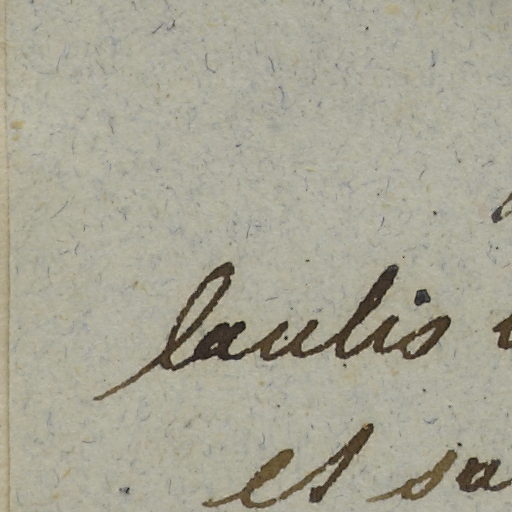 laulis
et sa